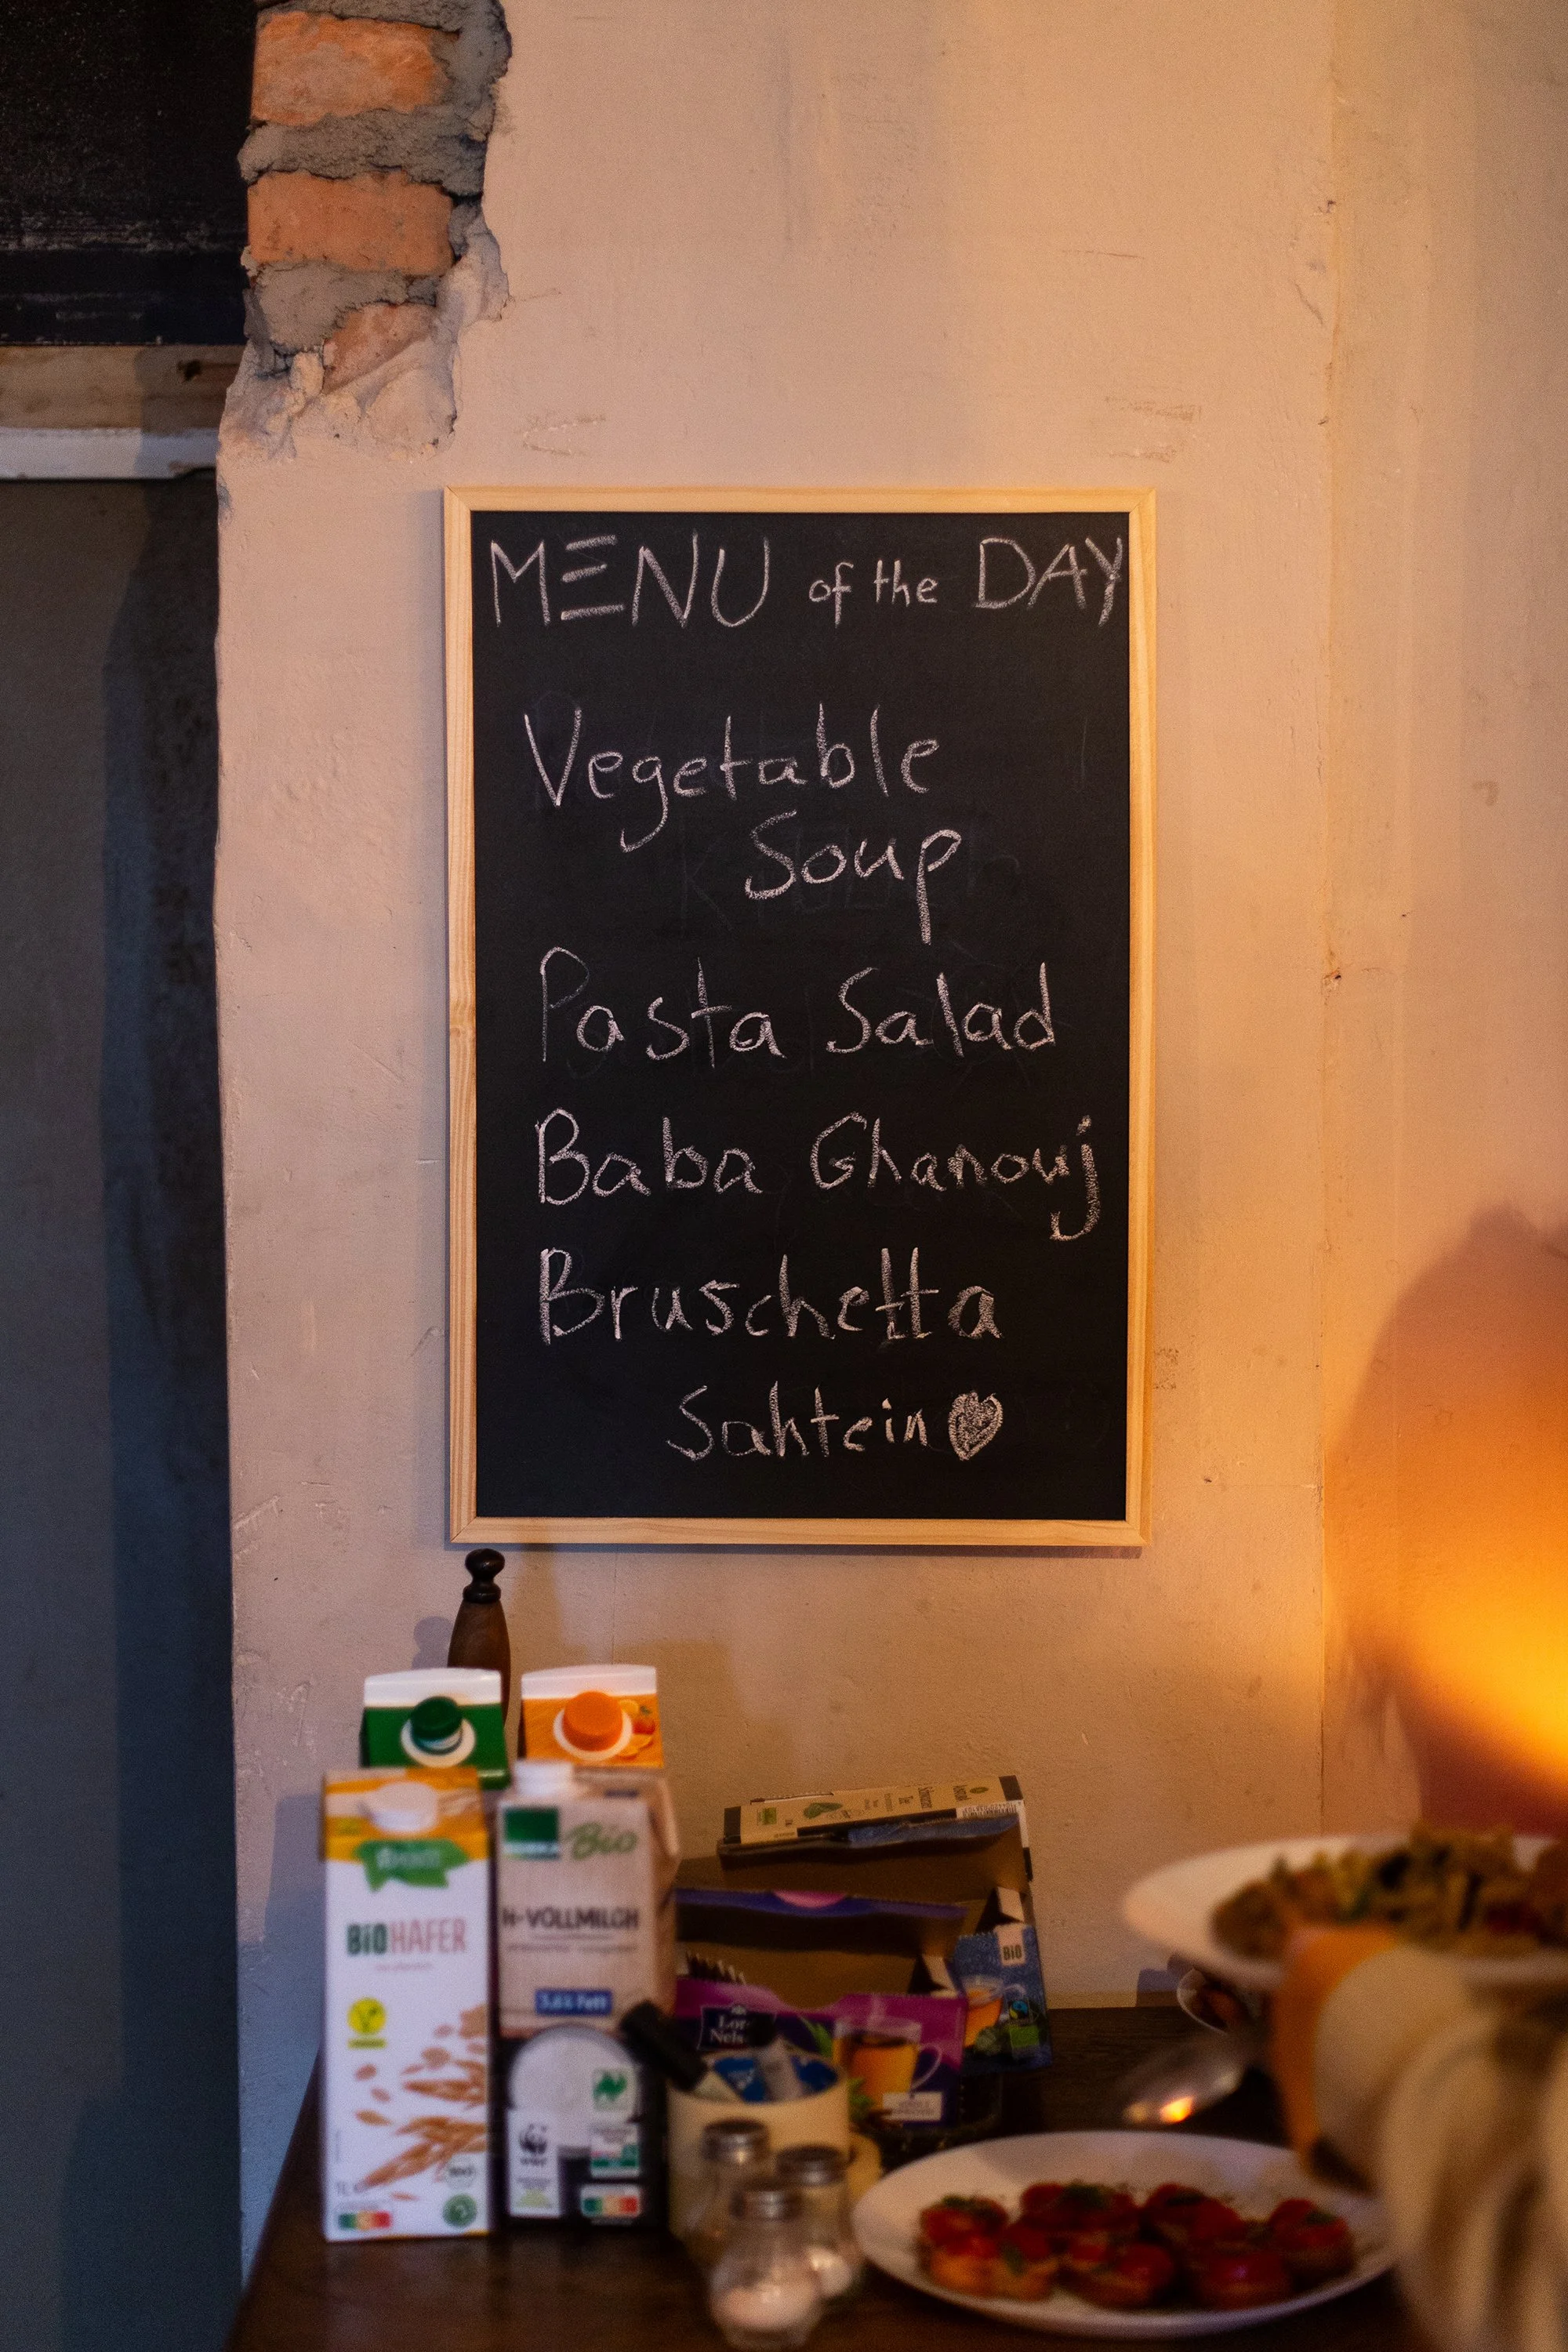 MENU of the DAY
Vegetable
Soup
Pasta Salad
Baba Ghanouj
Bruschetta
Sahtein
BiO HAFER
Bio
H-VOLLMILCH
3,8% Fett
WWF
BiO